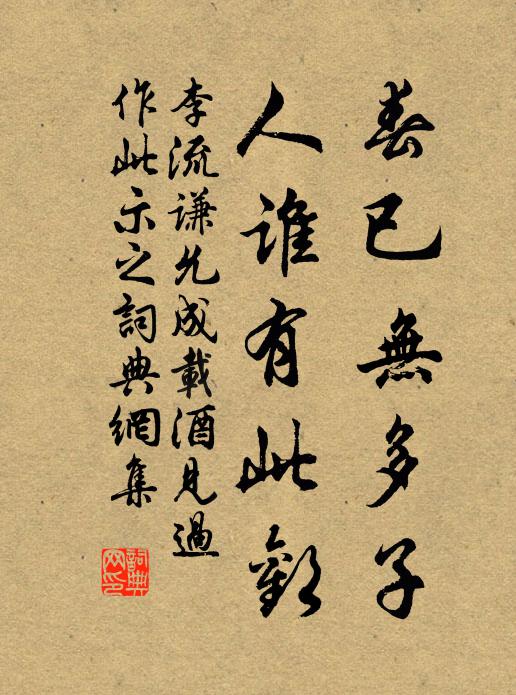 春已無多子
人誰有此歡
李流謙允成載酒見過
作此示之詞典網集
詞典网印